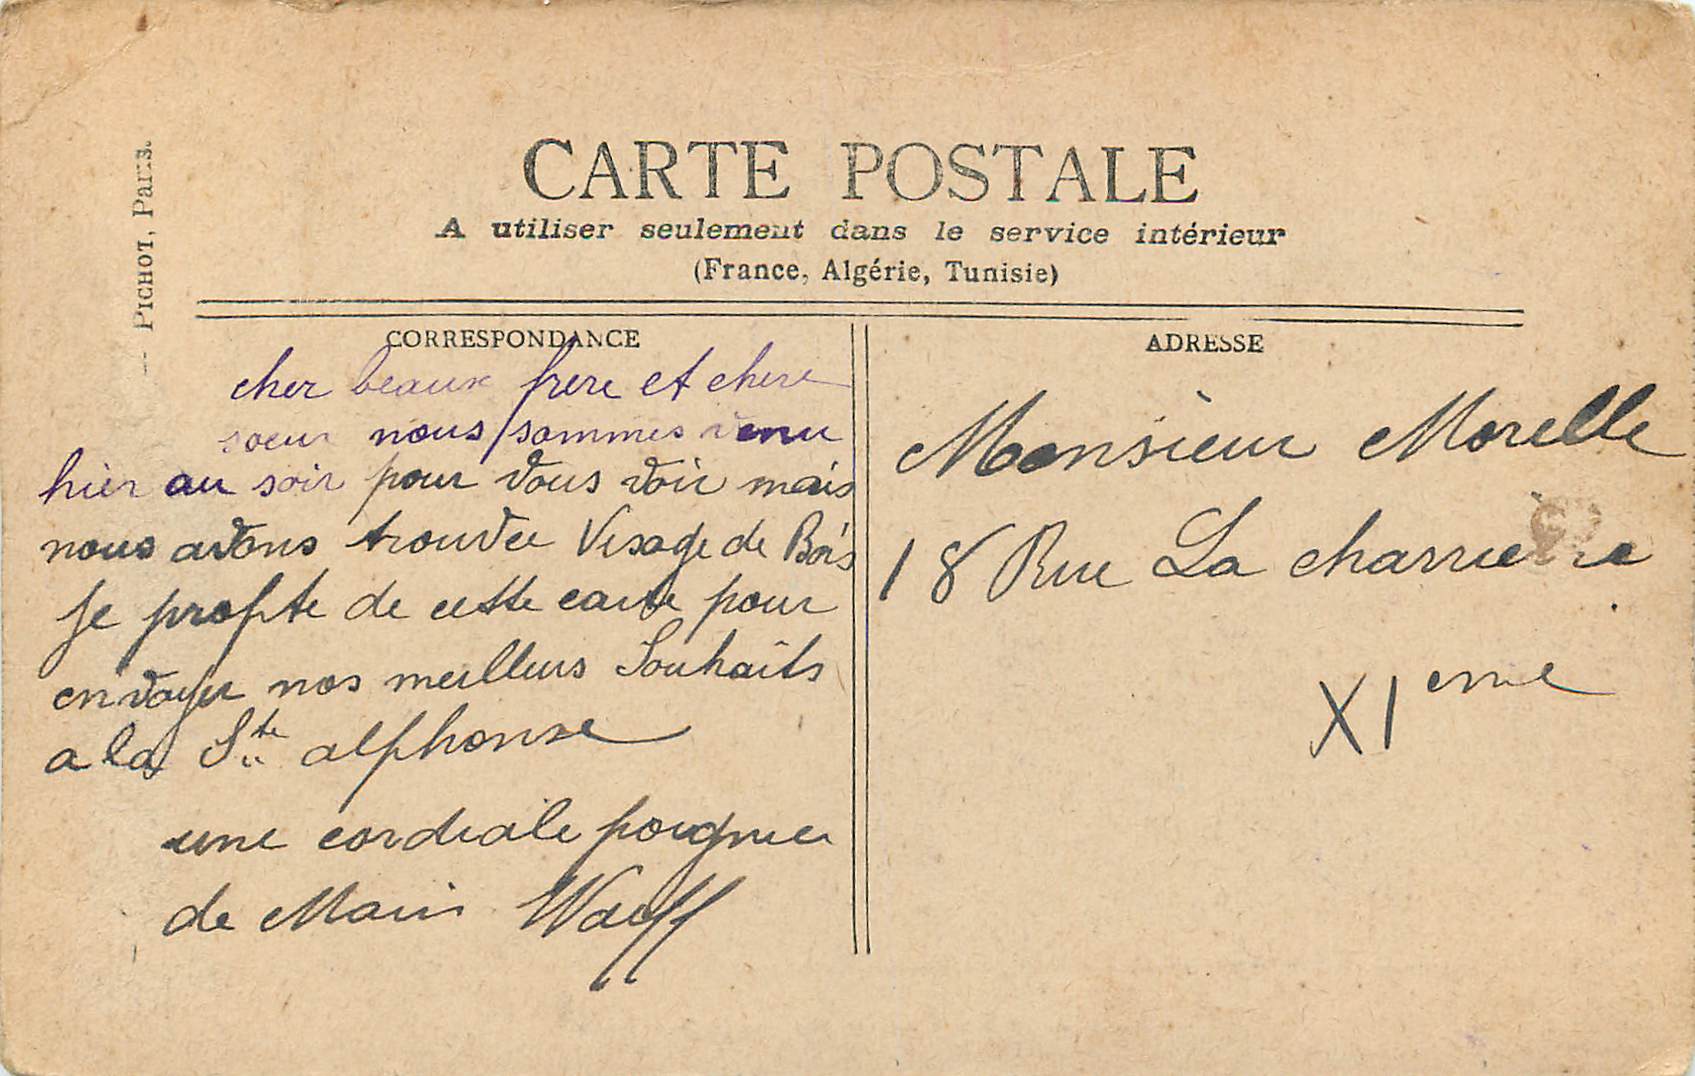 CARTE POSTALE
A utiliser seulement dans le service intérieur
(France, Algérie, Tunisie)
PICHOT, Paris.
CORRESPONDANCE
cher beaux frere et chere
soeur nous sommes venu
hier au soir pour vous voir mais
nous avons trouvee Visage de Bois
Je profite de cette carte pour
envoyer nos meilleurs Souhaits
a la Ste alphonse
une cordiale poignee
de Main
ADRESSE
Monsieur Morelle
18 Rue La charriere
XI eme